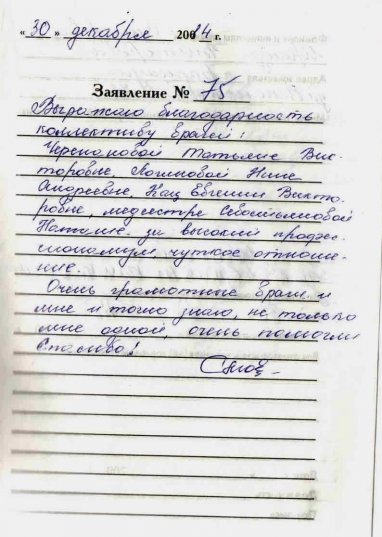 « 30 » декабря 200 14 г.
Заявление № 75
Выражаю благодарность
коллективу врачей:
Черепановой Татьяне Вик-
торовне, Логиновой Нине
Андреевне, Кац Евгении Викто-
ровне, медсестре Севастьяновой
Наталье за высокий профес-
сионализм, чуткое отноше-
ние.
Очень грамотные врачи и
мне и точно знаю, не только
мне одной, очень помогли
Спасибо!